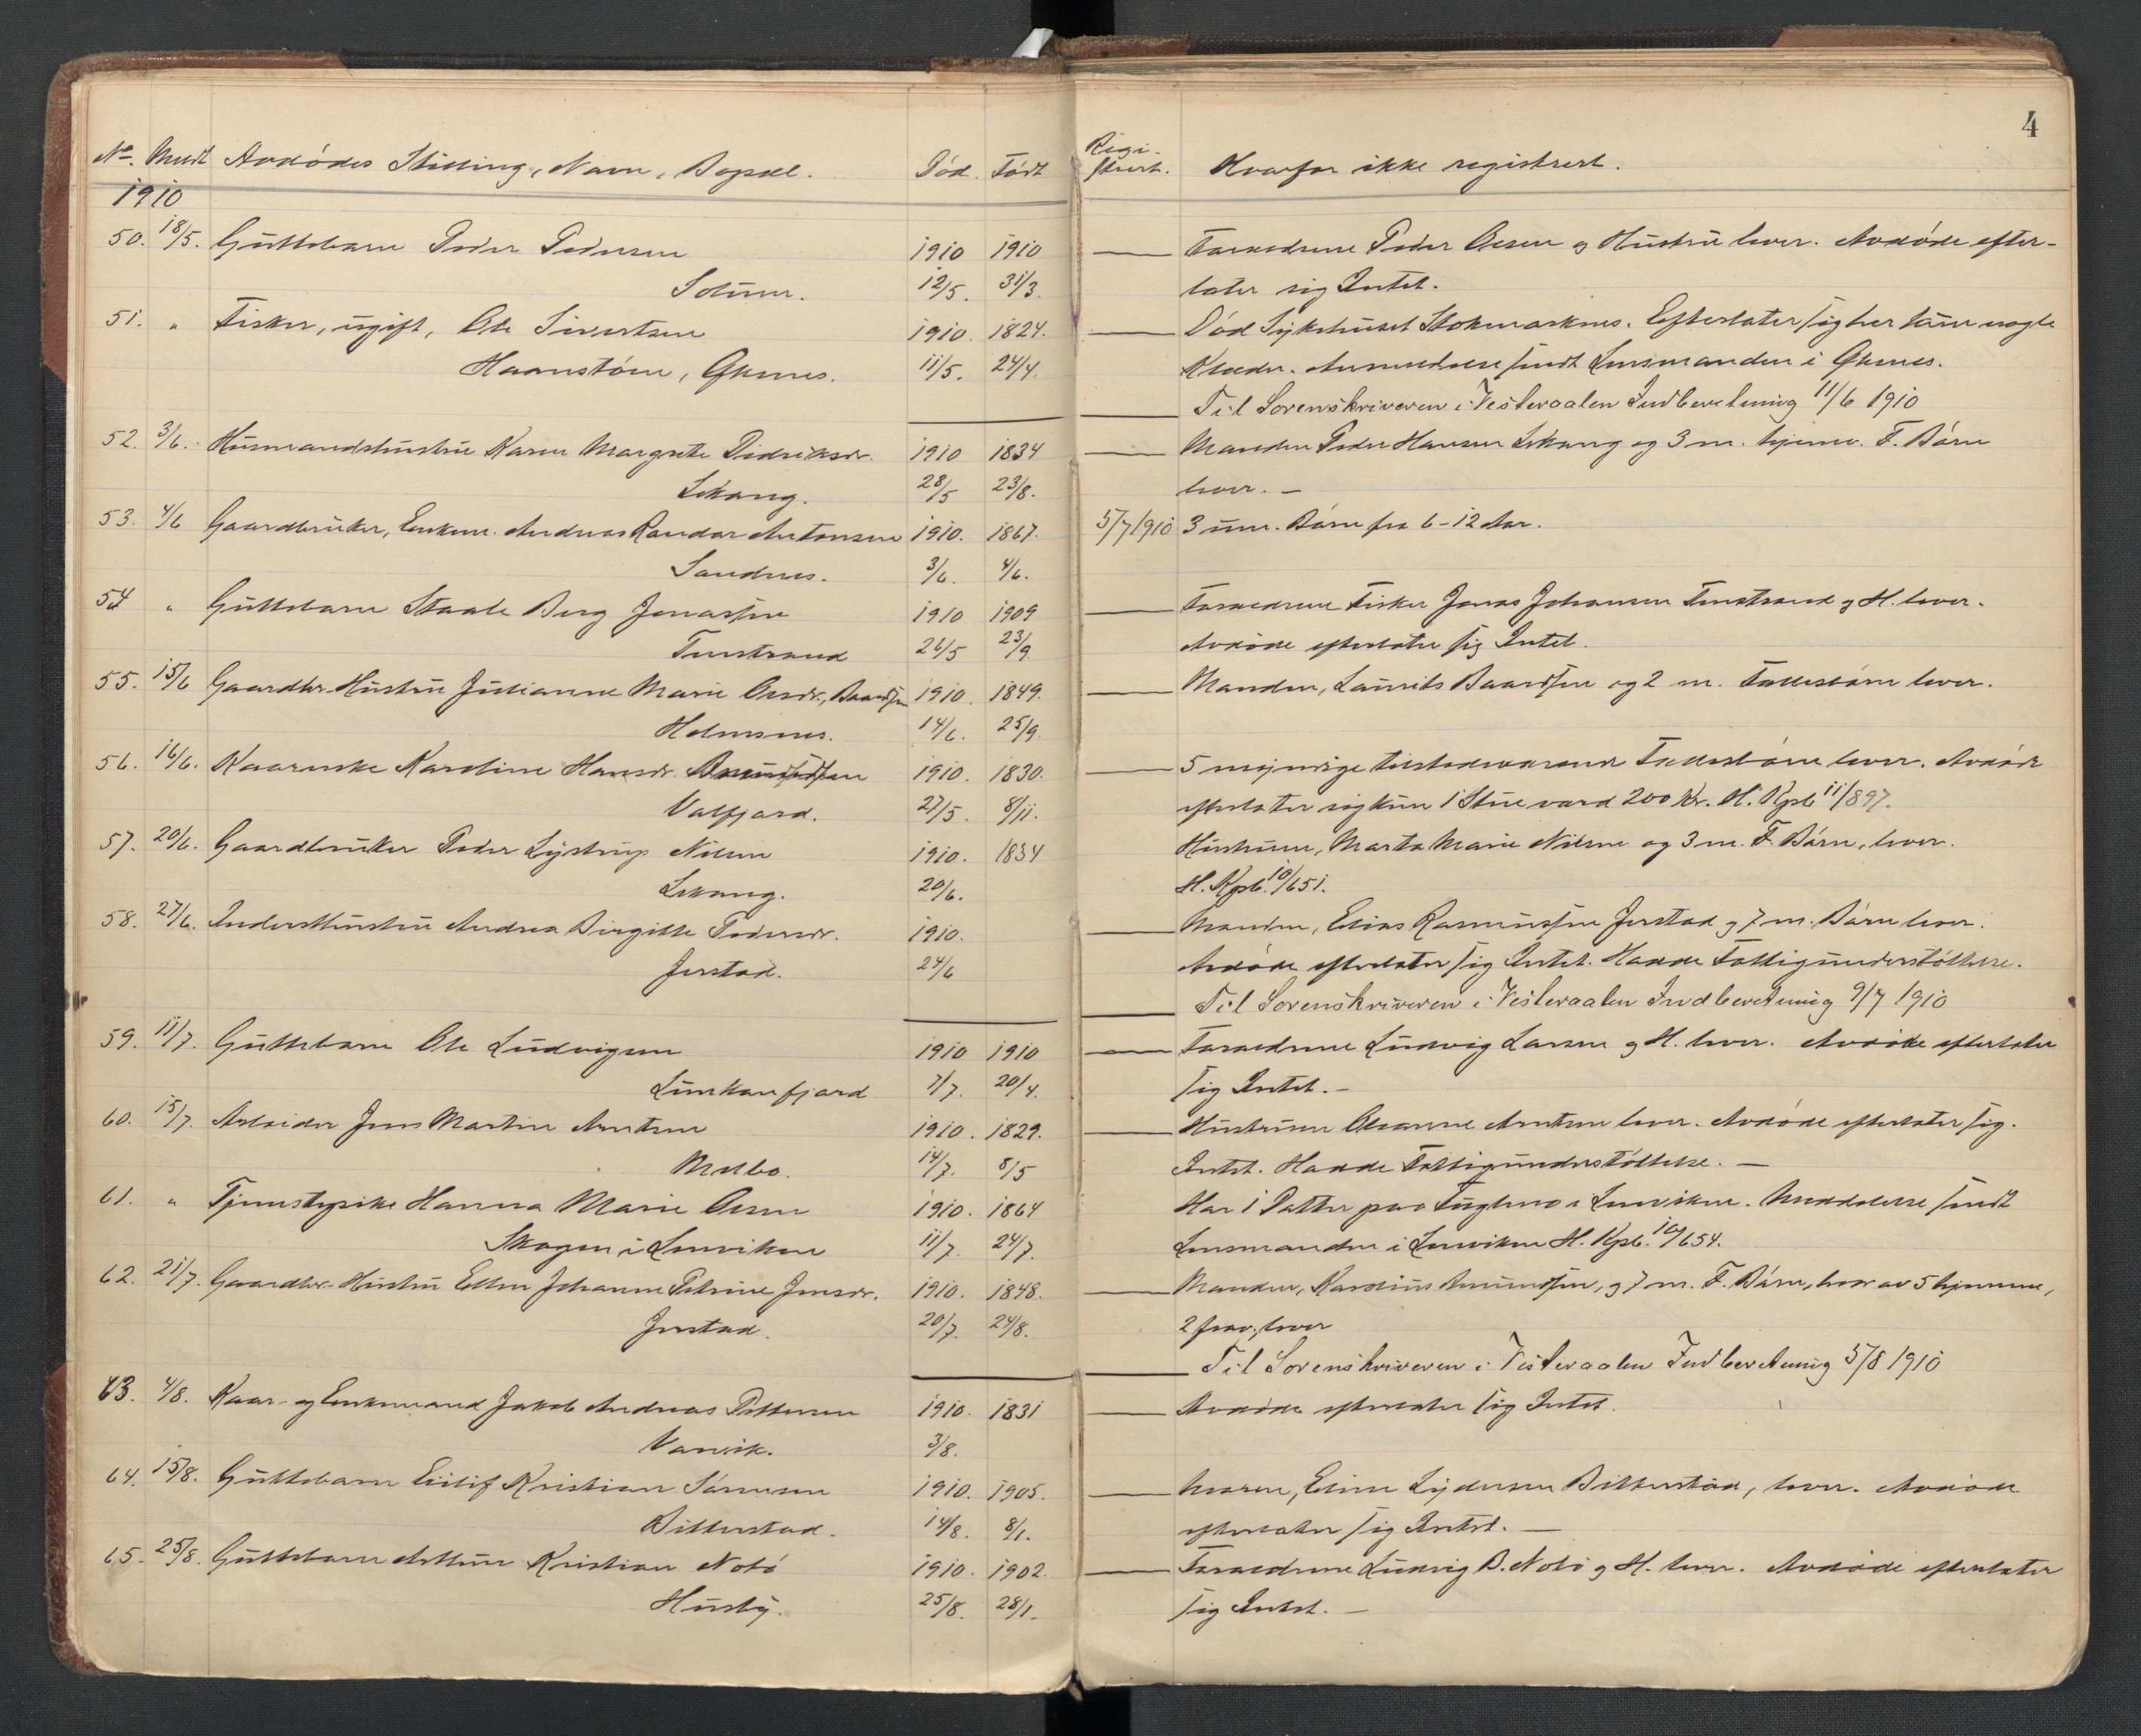 4
No. Meldt Avdødes Stilling, Navn, Bopæl. Død. Født Regi-strert. Hvorfor ikke registrert.
1910
50. 18/5. Guttebarn Peder Pedersen 1910 1910 — Forældrene Peder Olsen og Hustru lever. Avdøde efter-
12/5. 31/3. later sig Intet.
51. " Fisker, ugift, Ole Sivertsen 1910. 1824. — Død Sykehuset Stokmarknes. Efterlater sig her kun nogle
Haanstøen, Øksnes. 11/5. 24/4. Klæder. Anmeldelse sendt Lensmanden i Øksnes.
— Til Sorenskriveren i Vesteraalen Indberetning 11/6 1910
52. 3/6. Husmandshustru Karen Margrete Didriksdr. 1910 1834 — Manden Peder Hansen Lekang og 3 m. hjemv. F. Børn
Lekang. 28/5 23/8. lever. —
53. 4/6 Gaardbruker, Enkem. Andreas Randor Antonsen 1910. 1867. 5/7 1910 3 um. Børn fra 6-12 Aar.
Sandnes. 3/6. 4/6.
54 " Guttebarn Staale Berg Jonassen 1910 1909 — Forældrene Fisker Jonas Johansen Tunstrand og H. lever.
Tunstrand 26/5 23/9. Avdøde efterlater sig Intet.
55. 15/6 Gaardbr. Hustru Julianne Marie Olsdr., Baardsen 1910. 1849. — Manden, Laurits Baardsen og 2 m. Fællesbørn lever.
Holmsnes. 14/6. 25/9.
56. 16/6. Kaarenke Karoline Hansdr. 1910. 1830. — 5 myndige tilstedeværende Fællesbørn lever. Avdøde
Valfjord. 27/5. 8/11. efterlater sig kun 1 Stue værd 200 Kr. H. Kpb. 11/897.
57. 20/6. Gaardbruker Peder Lystrup Nilsen 1910. 1834 Hustruen, Marta Marie Nilsen og 3 m. F. Børn, lever.
Lekang. 20/6. H. Kpb. 10/651.
58. 27/6. Inderst Hustru Andrea Birgitte Pedersdr. 1910. — Manden, Elias Rasmussen Jerstad og 7 m. Børn lever.
Jerstad. 24/6 Avdøde efterlater sig Intet. Hadde Fattigunderstøttelse.
— Til Sorenskriveren i Vesteraalen Indberetning 9/7 1910
59. 11/7. Guttebarn Ole Ludvigsen 1910 1910 — Forældrene Ludvig Larsen og H. lever. Avdøde efterlater
Lunkanfjord 7/7. 20/4. sig Intet. —
60. 15/7. Arbeider Jens Martin Arntsen 1910. 1829. — Hustruen Oleanne Arntsen lever. Avdøde efterlater sig
Melbo. 14/7. 8/5 Intet. Hadde Fattigunderstøttelse. —
61. " Tjenestepike Hanna Marie Olsen 1910. 1864 Har 1 Datter paa Fuglenes i Lenviken. Meddelelse sendt
Skogen i Lenviken 11/7. 24/7. Lensmanden i Lenviken H. Kpb. 10/654.
62. 21/7. Gaardbr. Hustru Ellen Johanne Petrine Jensdr. 1910. 1848. — Manden, Karolius Amundsen, og 7 m. F. Børn, hvorav 5 hjemme,
Jerstad. 20/7. 24/8. 2 frav., lever
— Til Sorenskriveren i Vesteraalen Indberetning 5/8 1910
63. 4/8. Kaar- og Enkemand Jakob Andreas Pettersen 1910. 1831 — Avdøde efterlater sig Intet.
Varvik. 3/8.
64. 15/8. Guttebarn Eilif Kristian Sørensen 1910. 1905. — Moren, Eline Lydersen Bitterstad, lever. Avdøde
Bitterstad. 14/8. 8/1. efterlater sig Intet. —
65. 25/8. Guttebarn Arthur Kristian Nobø 1910. 1902. — Forældrene Ludvig B. Nobø og H. lever. Avdøde efterlater
Husby. 25/8. 28/1. sig Intet. —